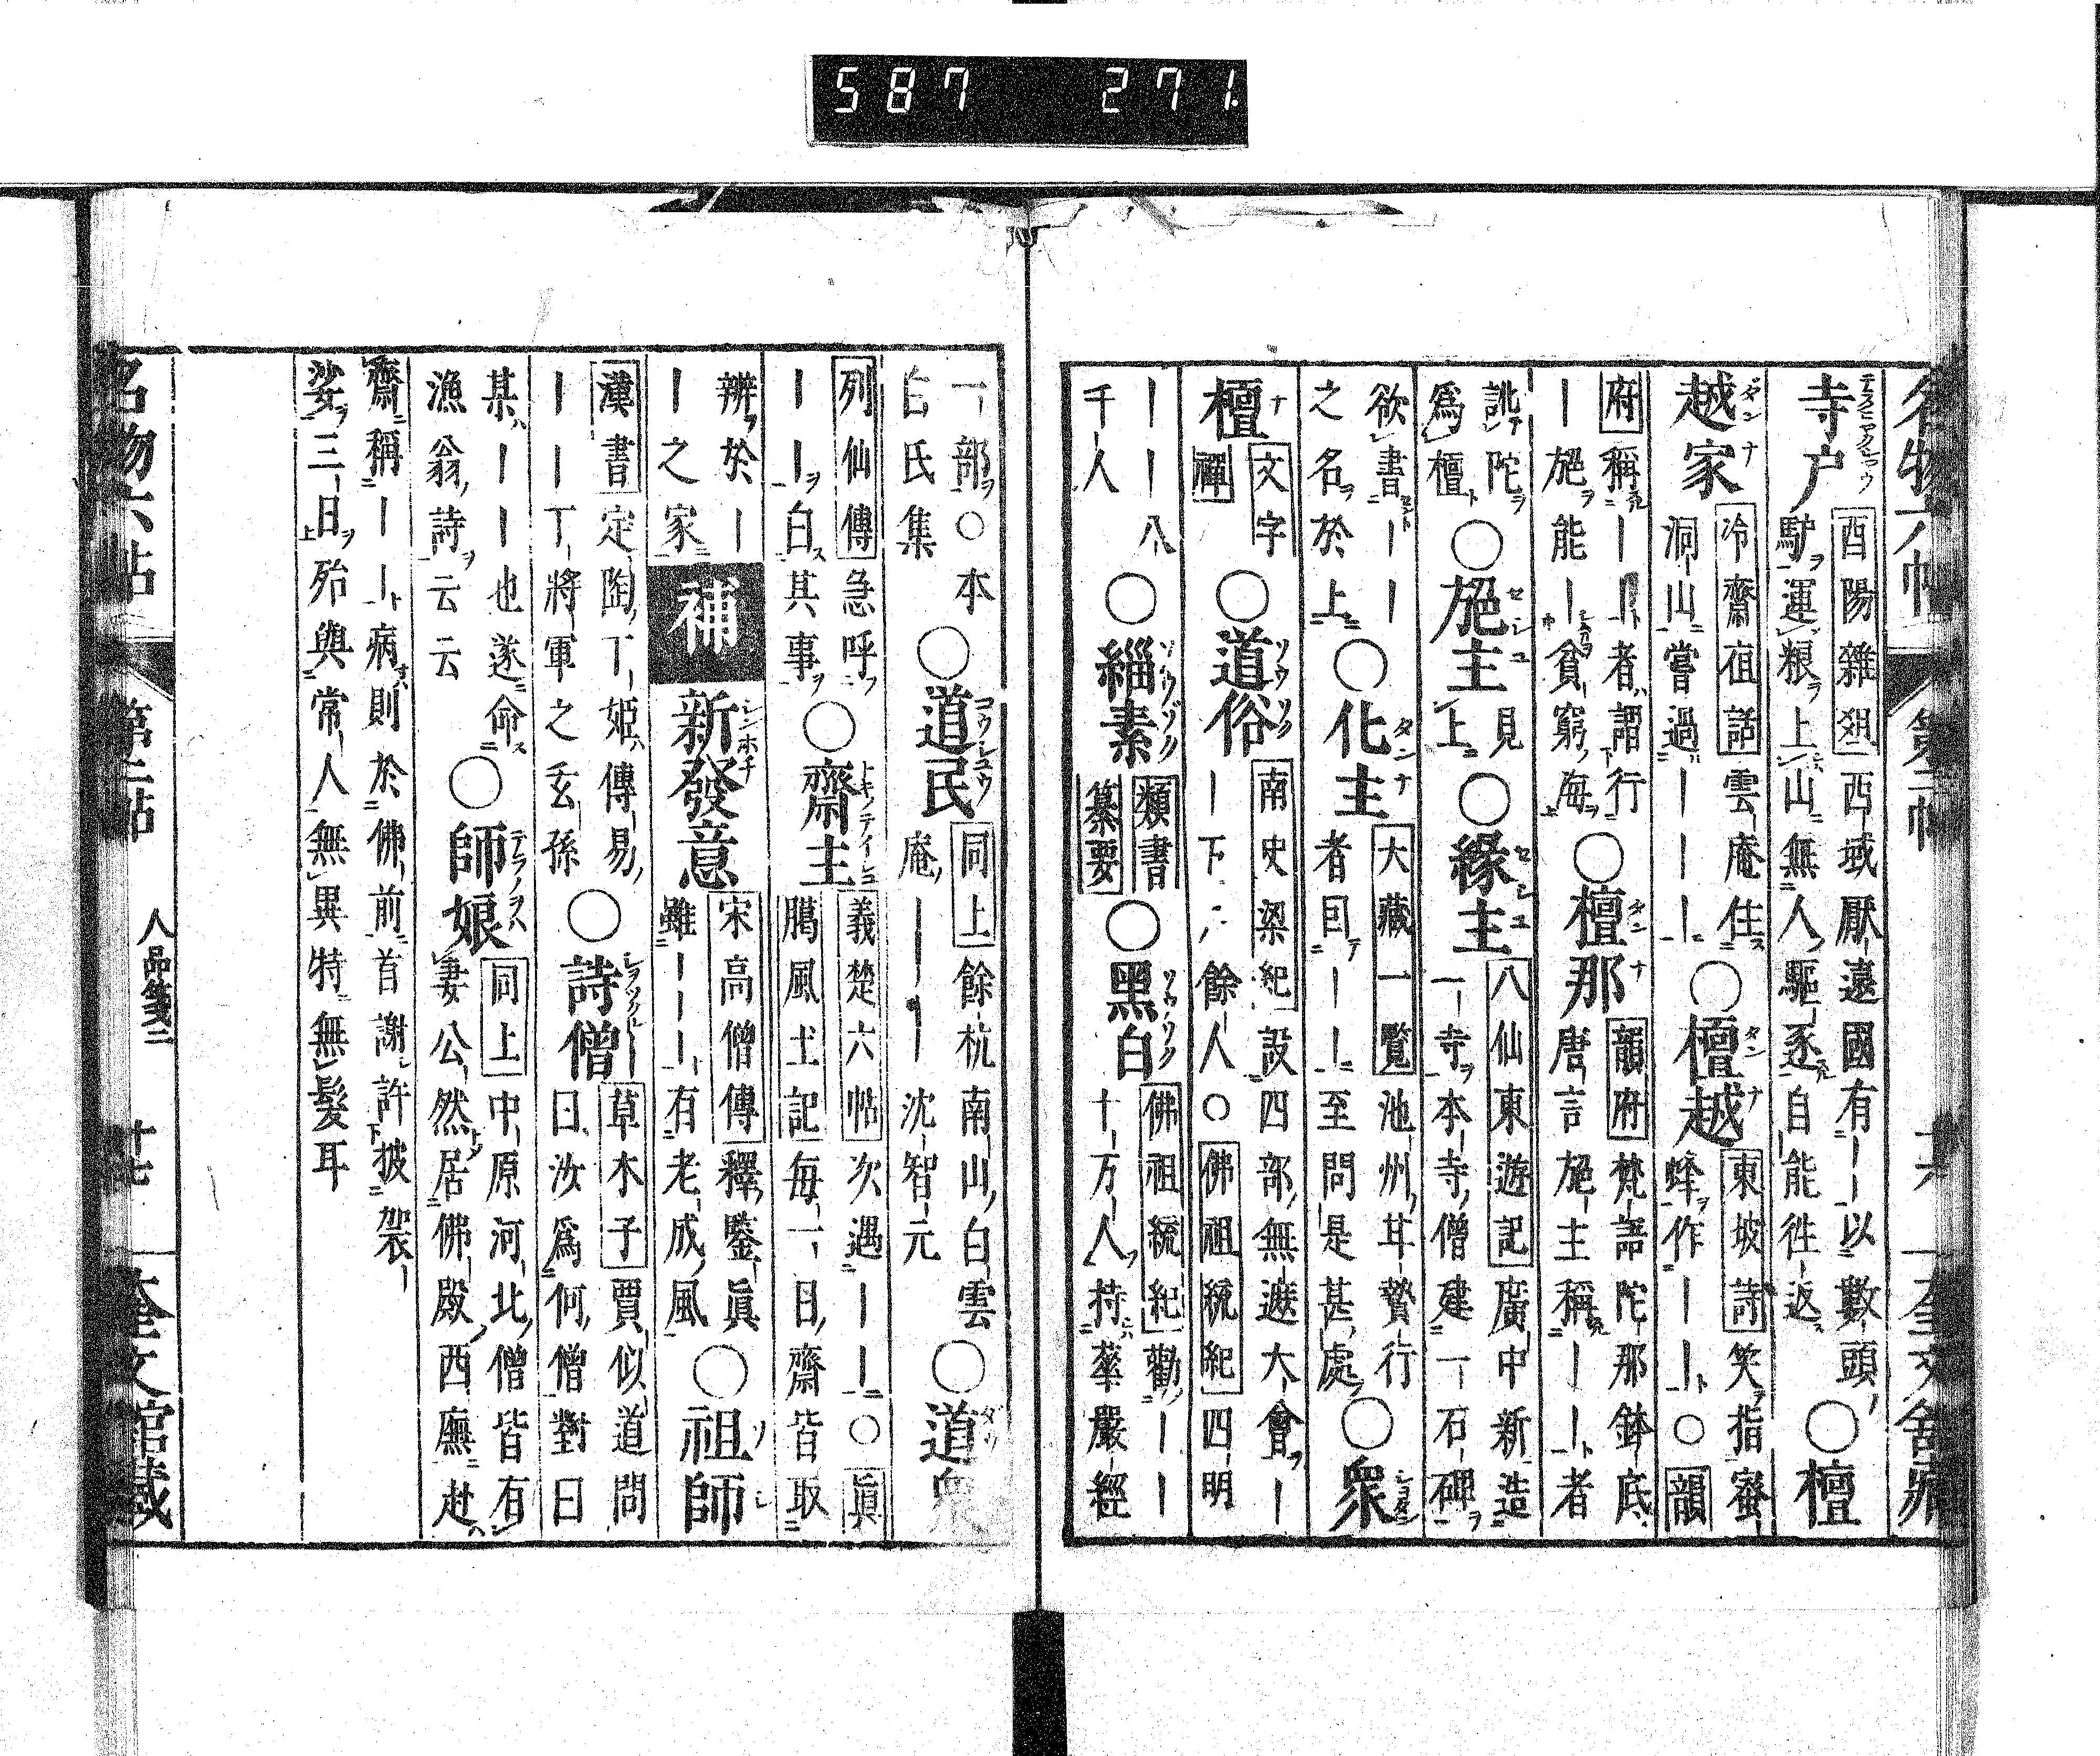 587 271.
名物六帖 第二帖 十六 奎文舘藏
寺戸 酉陽雜俎 西域厭達國有――以數頭
驢運粮上山無人驅逐自能徃返 ○檀
越家 冷齋夜話 雲庵住
洞山嘗過――― ○檀越 東坡詩 笑指蜜
蜂作―― ○韻
府 稱――者謂行
―施能―貧窮海 ○檀那 韻府 梵語陀那鉢底
唐言施主稱――者
訛陀
爲檀 ○施主 見上 ○緣主 八仙東遊記 廣中新造
一寺本寺僧建一石碑
欲書――
之名於上 ○化主 大藏一覽 池州甘贄行
者囙――至問是甚處 ○衆
檀 文字禪 ○道俗 南史梁紀 設四部無遮大會―
―下 餘人○佛祖統紀 四明
―――八
千人 ○緇素 類書纂要 ○黑白 佛祖統紀 勸――
十万人持華嚴經
一部○本
白氏集 ○道民 同上 餘杭南山白雲
庵――― 沈智元 ○道衆
列仙傳 急呼
――白其事 ○齋主 義楚六帖 次遇――○眞
臈風土記 每一日齋皆取
辨於―
―之家 補 新發意 宋高僧傳 釋鑒眞
雖―――有老成風 ○祖師
漢書 定陶丁姬傳易
――丁將軍之玄孫 ○詩僧 草木子 賈似道問
曰汝爲何僧對曰
某――也遂命
漁翁詩云云 ○師娘 同上 中原河北僧皆有
妻公然居佛殿西廡赴
齋稱――病則於佛前首謝許披袈
娑三日殆與常人無異特無髮耳
名物六帖 第二帖 人品箋三 十七 奎文舘藏